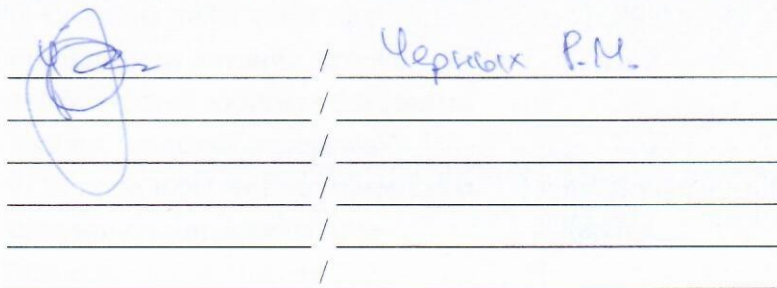 / Черных Р.М.
/
/
/
/
/